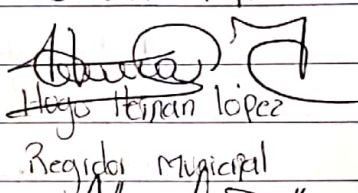 Hugo Hernan lópez
Regidor Municipal